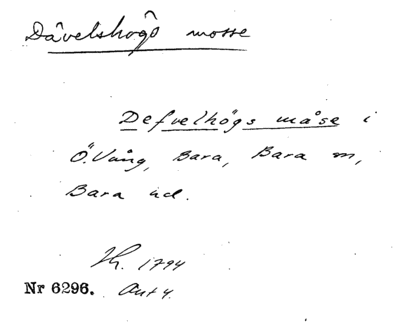 Dåvelshögs mosse
Defvelhögs måse i
Ö. Vång, Bara, Bara m,
Bara hd.
1794
Nr 6296. Akt 4.